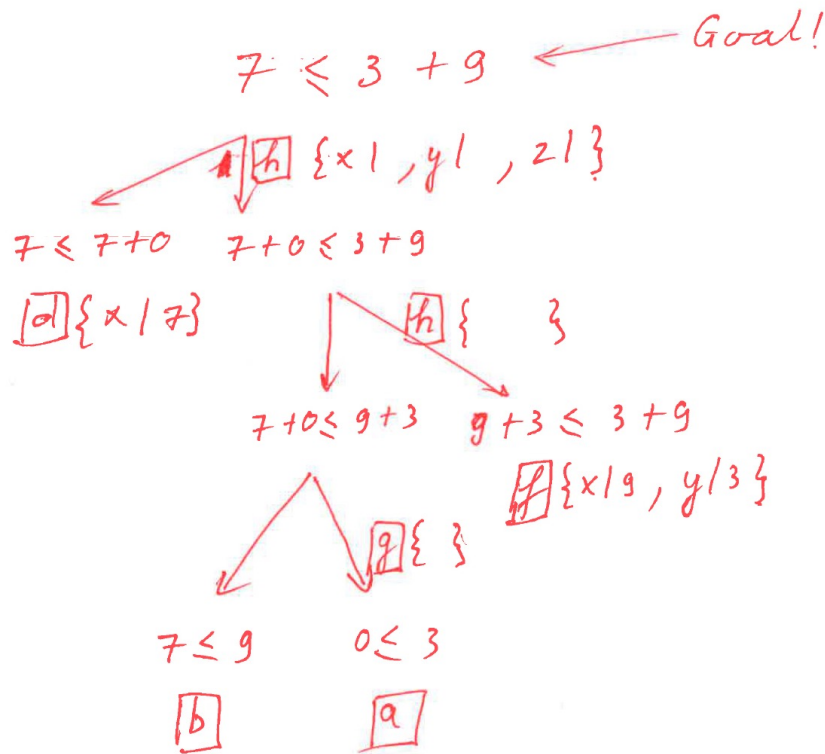 Goal!
7 ≤ 3 + 9
h {x/ , y/ , z/}
7 ≤ 7+0 7+0 ≤ 3+9
d {x/7} h { }
7+0 ≤ 9+3 9+3 ≤ 3+9
f {x/9, y/3}
g { }
7 ≤ 9 0 ≤ 3
b a